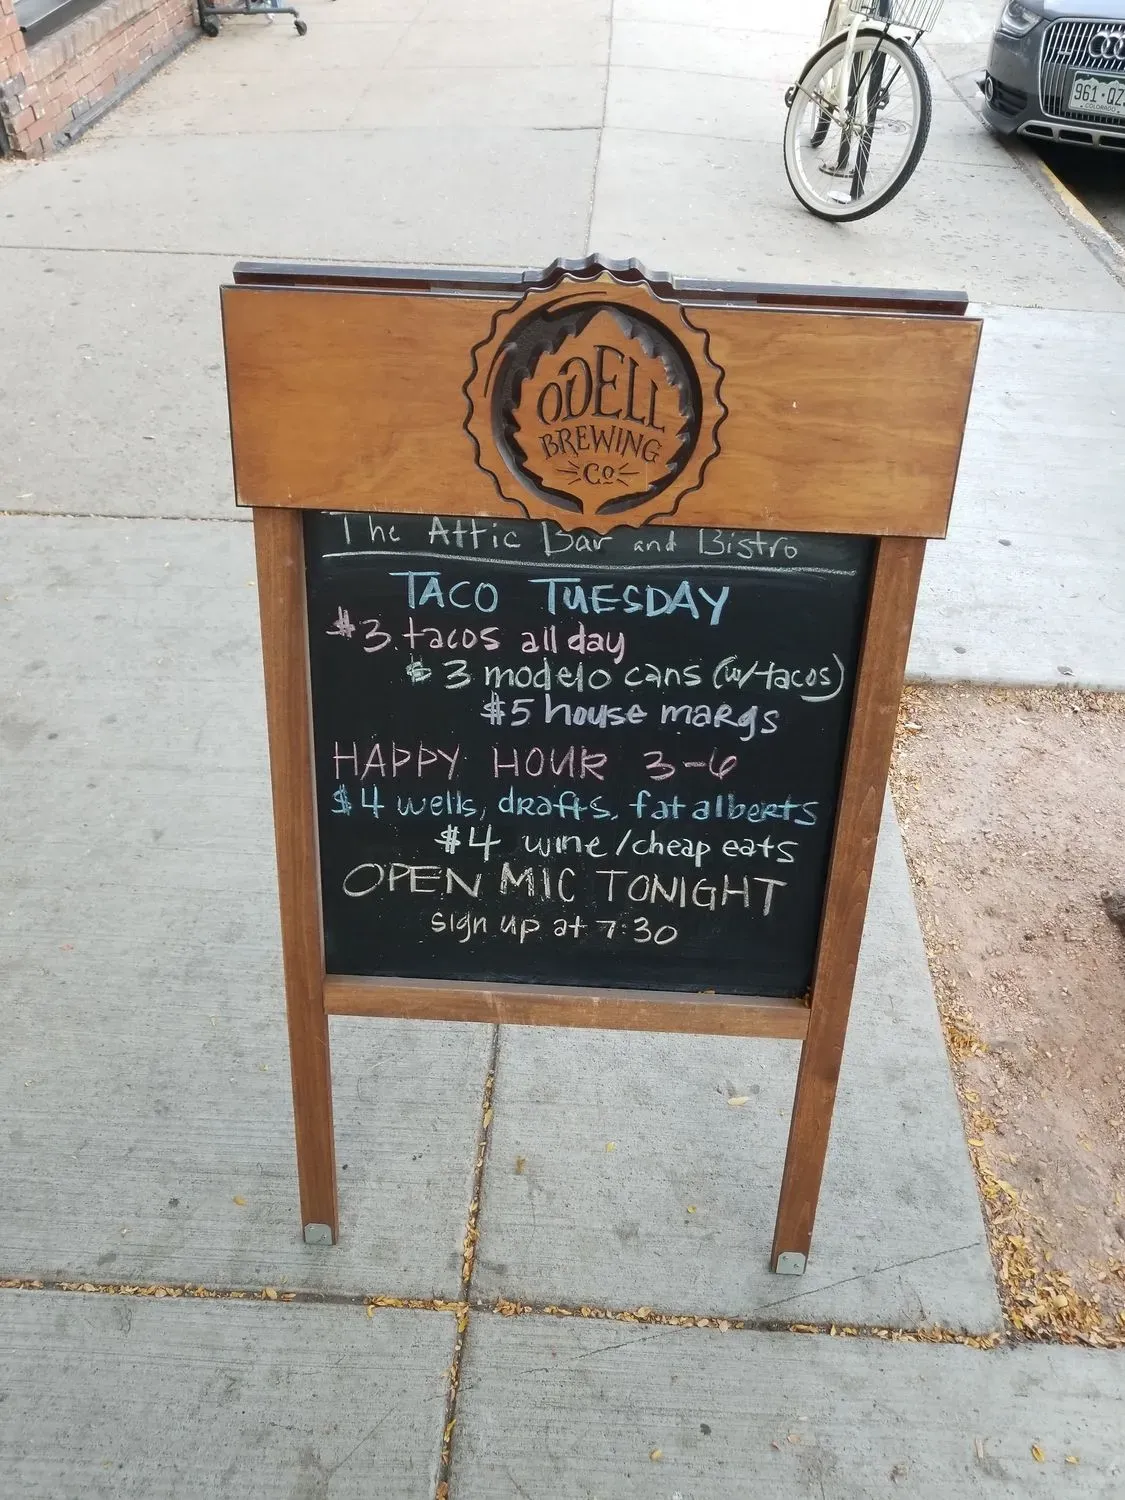 961·QZ
COLORADO
ODELL
BREWING
Co
The Attic Bar and Bistro
TACO TUESDAY
$3 tacos all day
$3 modelo cans (w/tacos)
$5 house margs
HAPPY HOUR 3-6
$4 wells, drafts, fat alberts
$4 wine/cheap eats
OPEN MIC TONIGHT
sign up at 7:30